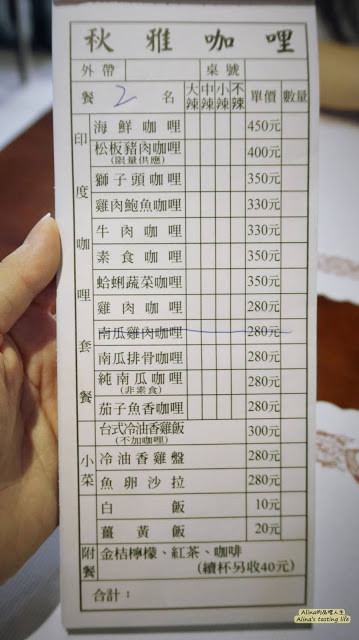 秋雅咖哩
外帶 桌號
餐 2 名 大辣 中辣 小辣 不辣 單價 數量
印度咖哩套餐
海鮮咖哩 450元
松板豬肉咖哩 400元
(限量供應)
獅子頭咖哩 350元
雞肉鮑魚咖哩 330元
牛肉咖哩 330元
素食咖哩 350元
蛤蜊蔬菜咖哩 350元
雞肉咖哩 280元
南瓜雞肉咖哩 280元
南瓜排骨咖哩 280元
純南瓜咖哩 280元
(非素食)
茄子魚香咖哩 280元
台式冷油香雞飯 300元
(不加咖哩)
小菜
冷油香雞盤 280元
魚卵沙拉 280元
白飯 10元
薑黃飯 20元
附餐 金桔檸檬、紅茶、咖啡
(續杯另收40元)
合計：
Alina的品嚐人生
Alina's tasting life